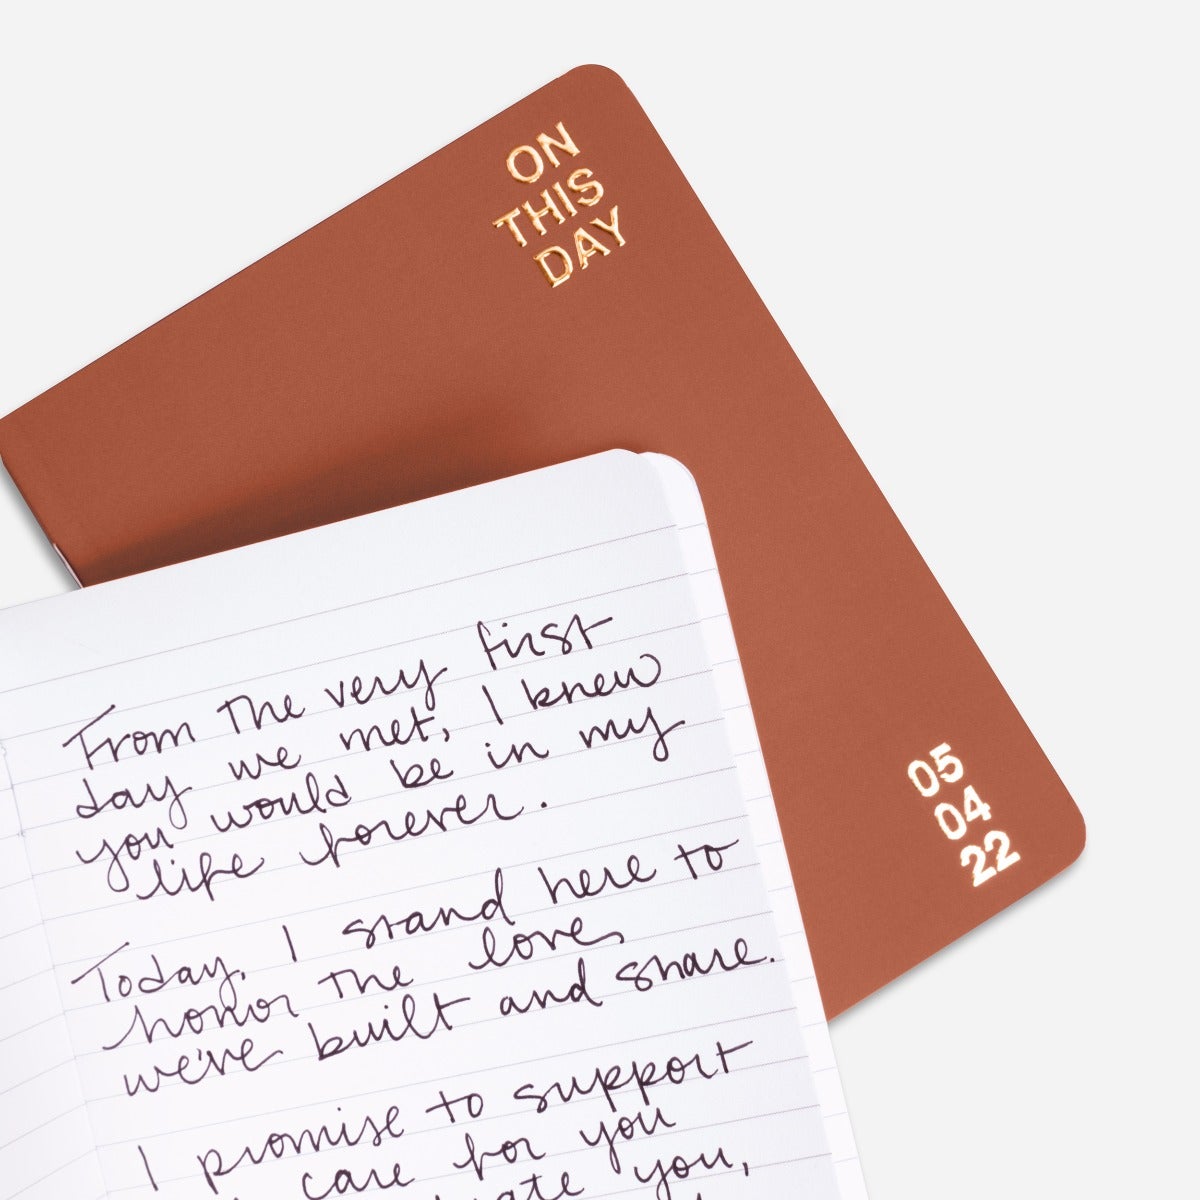 ON
THIS
DAY
05
04
22
From the very first
day we met, I knew
you would be in my
life forever.
Today, I stand here to
honor the love
we've built and share.
I promise to support
care for you
you,